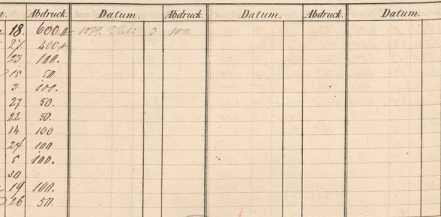 Abdruck. Datum. Abdruck. Datum. Abdruck. Datum.
18. 600. 3 100
27 400
23 100.
15 50.
3 100.
27 50.
22 50.
14 100
24 100
6 100.
30
19 100.
26 50.